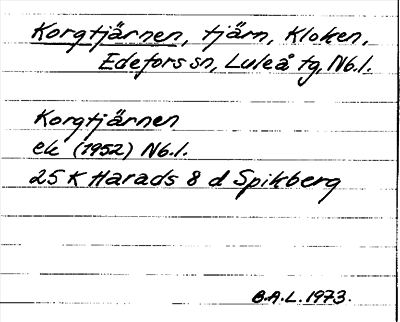 Korgtjärnen, tjärn, Kloken,
Edefors sn, Luleå tg, Nb.l.
Korgtjärnen
ek (1952) Nb.l.
25 K Harads 8 d Spikberg
B.A.L. 1973.